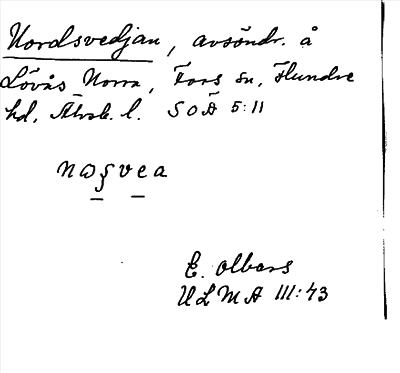 Nordsvedjan, avsöndr. å
Lövås Norra, Fors sn, Flundre
hd, Älvsb. l. SOÄ 5:11
nωʂvea
E. Olbers
ULMA 111:43